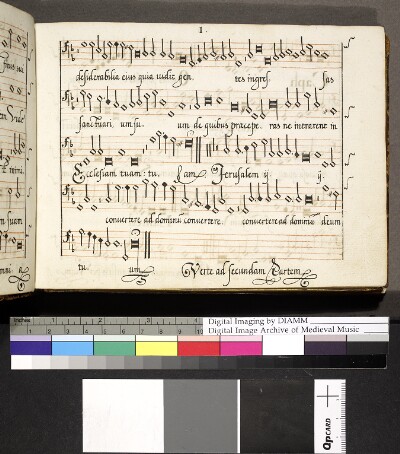 1.
desiderabilia eius quia vidit gen. tes ingres. sas
sanctuari. um su. um de quibus praecepe. ras ne intrarent in
Ecclesiam tuam: tu. am. Jerusalem ij. ij.
convertere ad dominū convertere. convertere ad dominū deum
tu. um
Verte ad secundam Partem
suam
Inches 1 2 3 4
Digital Imaging by DIAMM
Digital Image Archive of Medieval Music
QPCARD